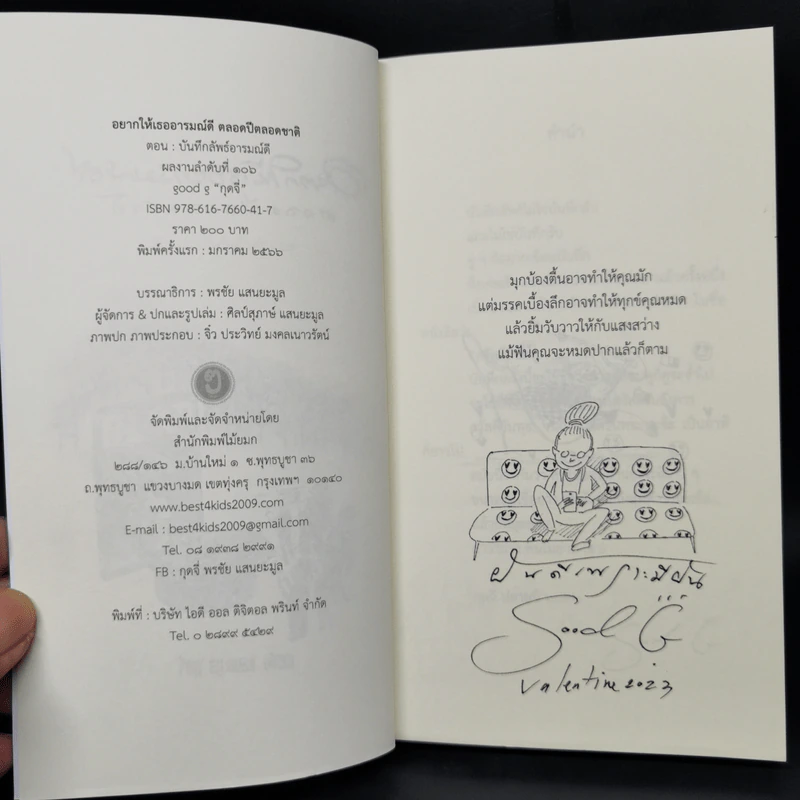 อยากให้เธออารมณ์ดี ตลอดปีตลอดชาติ
ตอน : บันทึกลัพธ์อารมณ์ดี
ผลงานลำดับที่ ๑๐๖
good g “กุดจี่”
ISBN 978-616-7660-41-7
ราคา ๒๐๐ บาท
พิมพ์ครั้งแรก : มกราคม ๒๕๖๖
บรรณาธิการ : พรชัย แสนยะมูล
ผู้จัดการ & ปกและรูปเล่ม : ศิลป์สุภาษ์ แสนยะมูล
ภาพปก ภาพประกอบ : จิ๋ว ประวิทย์ มงคลเนาวรัตน์
ๆ
จัดพิมพ์และจัดจำหน่ายโดย
สำนักพิมพ์ไม้ยมก
๒๘๘/๑๔๖ ม.บ้านใหม่ ๑ ซ.พุทธบูชา ๓๖
ถ.พุทธบูชา แขวงบางมด เขตทุ่งครุ กรุงเทพฯ ๑๐๑๔๐
www.best4kids2009.com
E-mail : best4kids2009@gmail.com
Tel. ๐๘ ๑๙๓๘ ๒๙๙๑
FB : กุดจี่ พรชัย แสนยะมูล
พิมพ์ที่ : บริษัท ไอดี ออล ดิจิตอล พรินท์ จำกัด
Tel. ๐ ๒๘๙๙ ๕๔๒๙
มุกบ้องตื้นอาจทำให้คุณมัก
แต่มรรคเบื้องลึกอาจทำให้ทุกข์คุณหมด
แล้วยิ้มวับวาวให้กับแสงสว่าง
แม้ฟันคุณจะหมดปากแล้วก็ตาม
ฝันดีเพราะมีฝัน
Good G
Valentine 2023